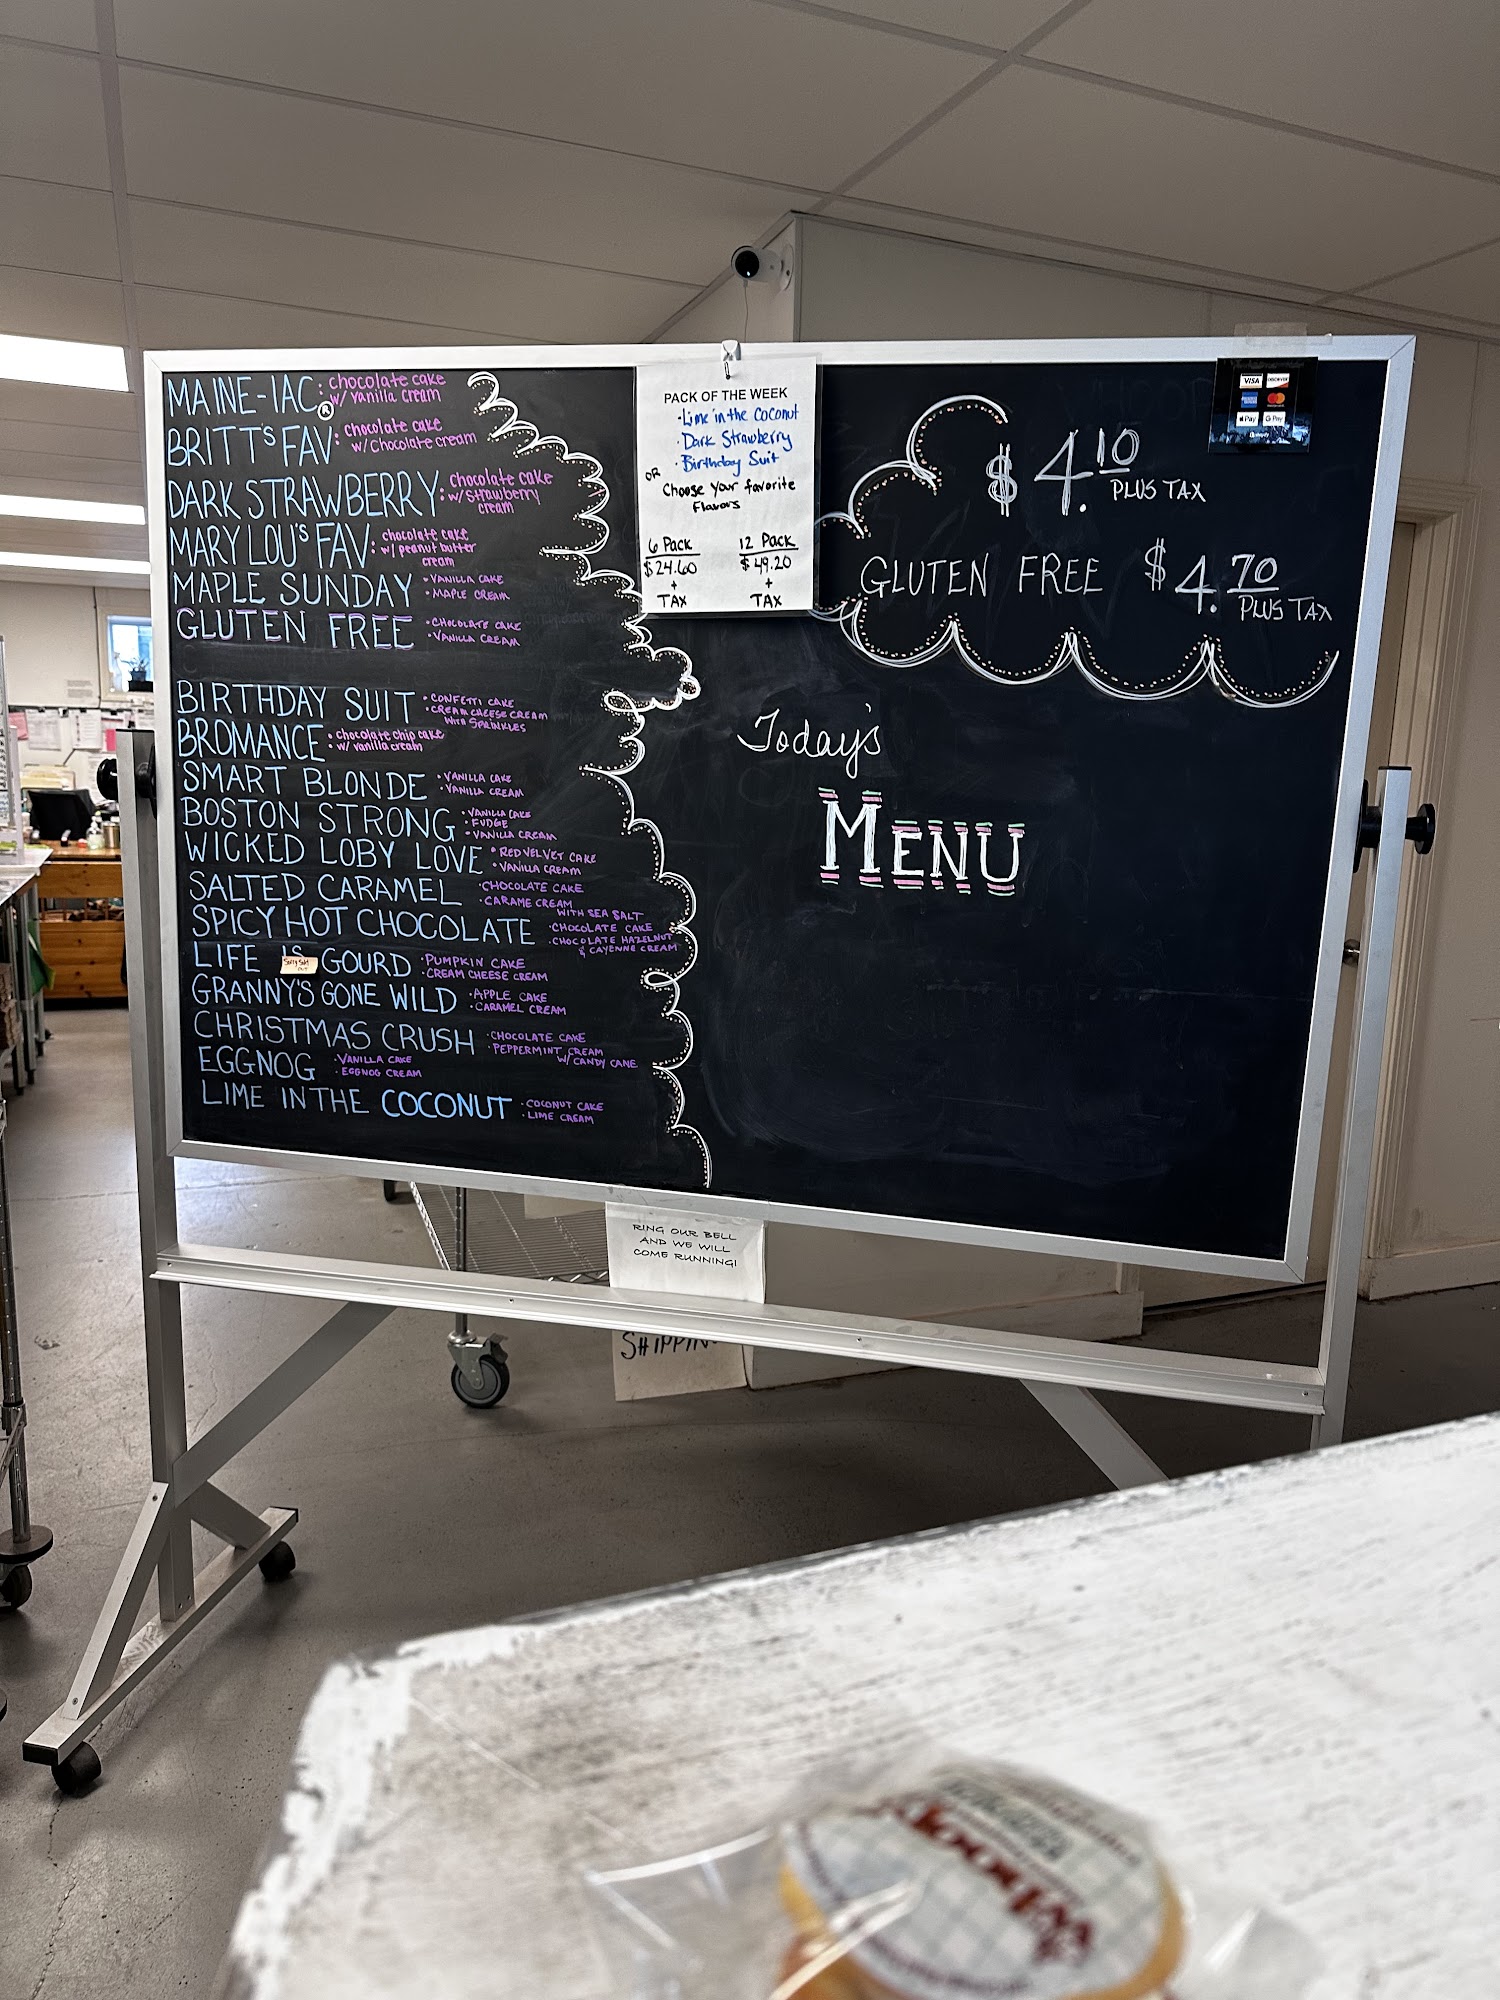 MAINE-IAC®: chocolate cake
w/ vanilla cream
BRITT'S FAV: chocolate cake
w/ chocolate cream
DARK STRAWBERRY: chocolate cake
w/ strawberry
cream
MARY LOU'S FAV: chocolate cake
w/ peanut butter
cream
MAPLE SUNDAY • VANILLA CAKE
• MAPLE CREAM
GLUTEN FREE • CHOCOLATE CAKE
• VANILLA CREAM
BIRTHDAY SUIT • CONFETTI CAKE
• CREAM CHEESE CREAM
WITH SPRINKLES
BROMANCE • chocolate chip cake
• w/ vanilla cream
SMART BLONDE • VANILLA CAKE
• VANILLA CREAM
BOSTON STRONG • VANILLA CAKE
• FUDGE
• VANILLA CREAM
WICKED LOBY LOVE • RED VELVET CAKE
• VANILLA CREAM
SALTED CARAMEL • CHOCOLATE CAKE
• CARAME CREAM
WITH SEA SALT
SPICY HOT CHOCOLATE • CHOCOLATE CAKE
• CHOCOLATE HAZELNUT
& CAYENNE CREAM
LIFE IS GOURD • PUMPKIN CAKE
• CREAM CHEESE CREAM
GRANNY'S GONE WILD • APPLE CAKE
• CARAMEL CREAM
CHRISTMAS CRUSH • CHOCOLATE CAKE
• PEPPERMINT CREAM
W/ CANDY CANE
EGGNOG • VANILLA CAKE
• EGGNOG CREAM
LIME IN THE COCONUT • COCONUT CAKE
• LIME CREAM
PACK OF THE WEEK
• Lime in the Coconut
• Dark Strawberry
• Birthday Suit
OR
Choose your favorite
flavors
6 Pack
$24.60
+
TAX
12 Pack
$49.20
+
TAX
$4.10
PLUS TAX
GLUTEN FREE $4.70
PLUS TAX
VISA DISCOVER
Pay G Pay
Today's
MENU
RING OUR BELL
AND WE WILL
COME RUNNING!
SHIPPIN